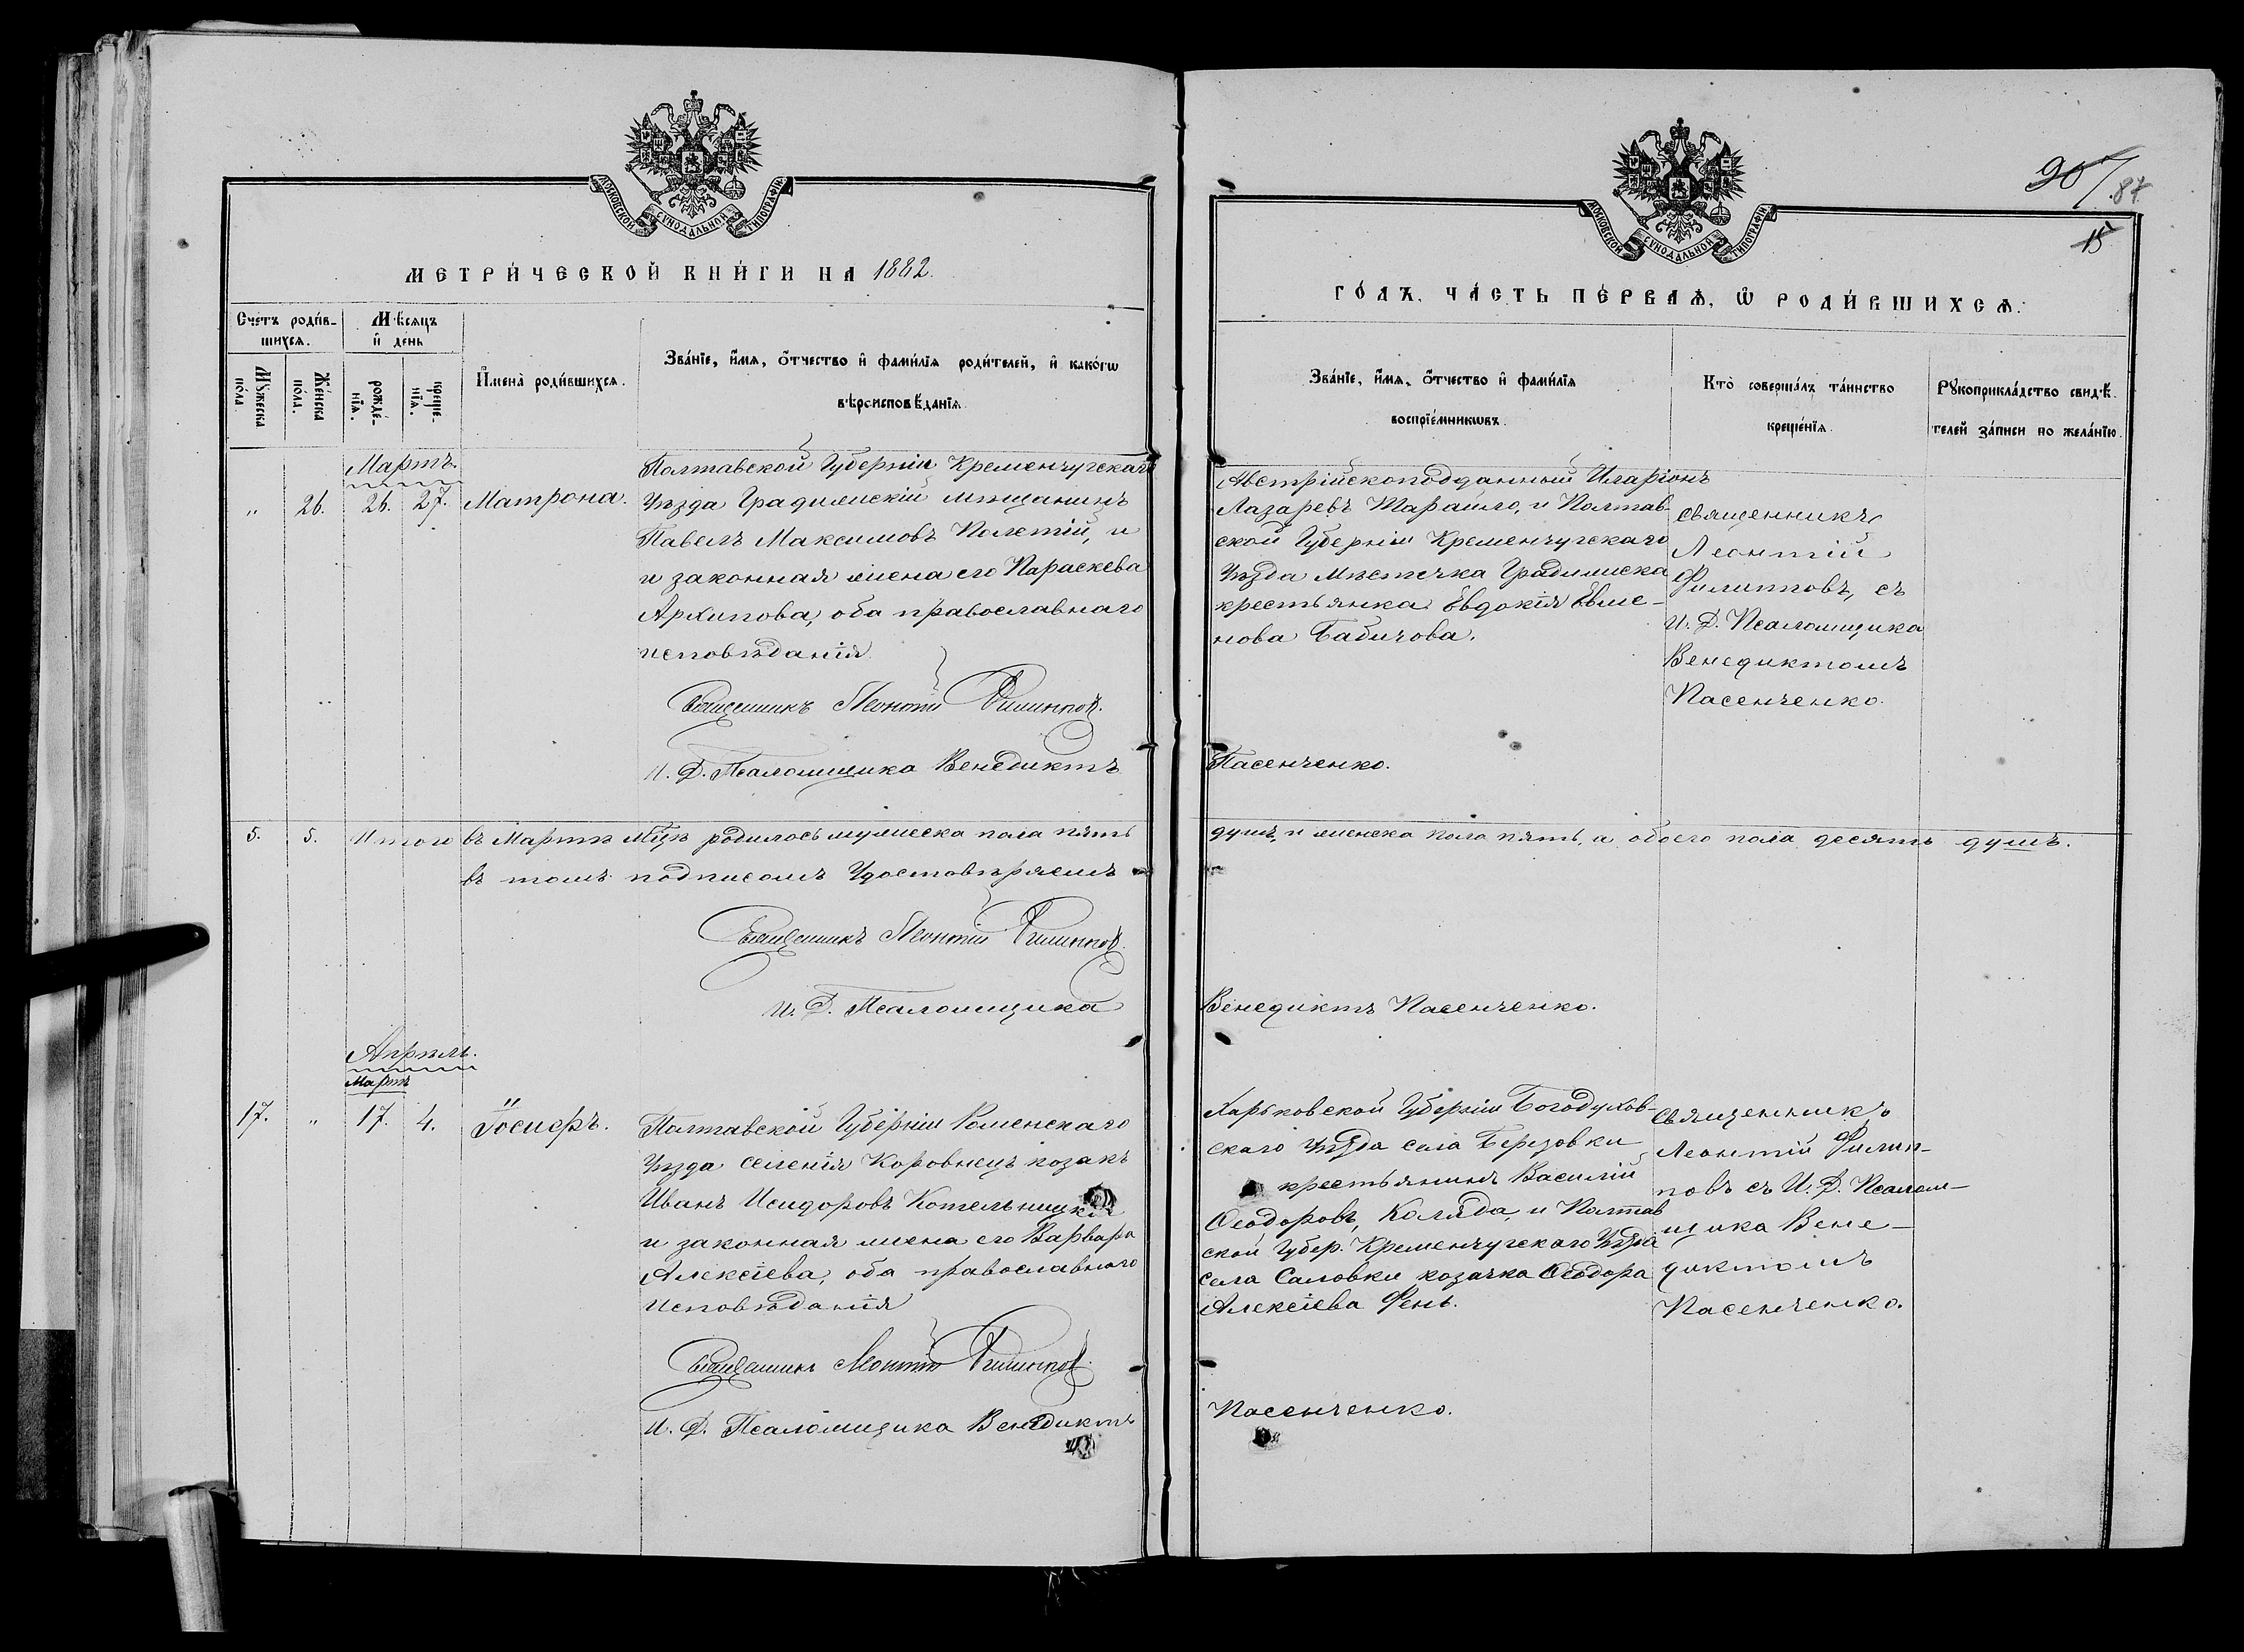 МОСКОВСКОЙ СУНОДАЛЬНОЙ ТИПОГРАФІИ
МЕТРИ́ЧЕСКОЙ КНИ́ГИ НА 1882.
Счетъ роди́в-
шихся.
Мѣ́сяцъ
и҆ де́нь
Му́жеска
по́ла
Же́нска
по́ла.
рожде́-
нїѧ.
креще́-
нїѧ.
И҆мена̀ роди́вшихся.
Зва́нїе, и҆́мя, ѻ҆́тчество и҆ фами́лїя роди́телей, и҆ како́гѡ
вѣроисповѣ́данїя
Мартъ.
„ 26. 26. 27. Матрона.
Полтавской Губерніи Кременчугскаго
Уѣзда Градижскій мѣщанинъ
Павелъ Максимовъ Полетій, и
и законная жена его Параскева
Архипова, оба православнаго
исповѣданія
Священникъ Леонтій Филипповъ.
И. Д. Псаломщика Венедиктъ
5. 5. Итого въ Мартѣ м-цѣ родилось мужеска пола пять
въ томъ подписомъ Удостовѣряемъ
Священникъ Леонтій Филипповъ.
И. Д. Псаломщика
Апрѣль.
Мартъ
17. „ 17. 4. Іосифъ.
Полтавской Губерніи Роменскаго
Уѣзда селенія Коровнецъ козакъ
Иванъ Исидоровъ Котельницкій
и законная жена его Варвара
Алексіева, оба православнаго
исповѣданія
Священникъ Леонтій Филипповъ.
И. Д. Псаломщика Венедиктъ
МОСКОВСКОЙ СУНОДАЛЬНОЙ ТИПОГРАФІИ
90
87
15
ГО́ДЪ, ЧА́СТЬ ПЕ́РВАЯ, Ѡ РОДИ́ВШИХСЯ:
Зва́нїе, и҆́мя, ѻ҆́тчество и҆ фами́лїя
воспрїе́мникѡвъ.
Кто̀ соверша́лъ та́инство
креще́нїя
Рꙋкоприкла́дство свидѣ́-
телей за́писи по жела́нїю.
Австрійскоподданный Иларіонъ
Лазаревъ Тарайло, и Полтав-
ской Губерніи Кременчугскаго
Уѣзда Мѣстечка Градижска
крестьянка Евдокія Евме-
нова Бабичова.
Священникъ
Леонтій
Филипповъ, съ
И. Д. Псаломщика
Венедиктомъ
Пасенченко.
Пасенченко.
душъ, и женска пола пять, а обоего пола десять душъ.
Венедиктъ Пасенченко.
Харьковской Губерніи Богодухов-
скаго Уѣзда села Березовки
крестьянинъ Василій
Ѳеодоровъ, Коляда, и Полтав
ской Губер. Кременчугскаго Уѣзда
села Саловки козачка Ѳеодора
Алексіева Фень.
Священникъ
Леонтій Филип-
повъ съ И. Д. Псалом-
щика Вене-
диктомъ
Пасенченко.
Пасенченко.